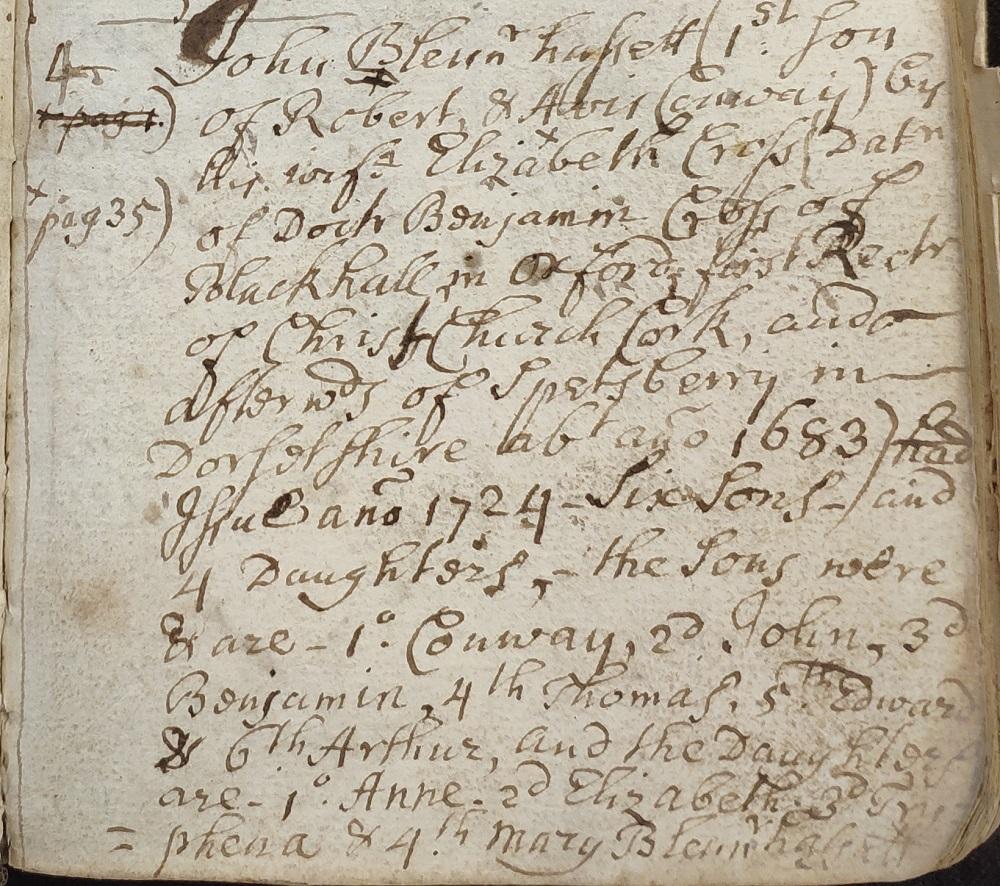 4
pag 1.)
x
pag 35)
John Blennrhassett (1st Son
of Robert, & Avis Conway) by
his wife Elizabeth Cross (Datr
of Doctr Benjamin Cross of
Blackhall in Oxford, first Rectr
of Christ Church Cork, and
Afterwds of Spetsberry in
Dorsetshire abt año 1683) had
Issue año 1724 - Six Sons -) and
4 Daughters, - the Sons were
& are - 1o. Conway, 2d John, 3d
Benjamin, 4th Thomas, 5th Edward
& 6th Arthur, and the Daughters
are - 1o. Anne - 2d Elizabeth - 3d Try
= phena & 4th Mary Blennrhassett